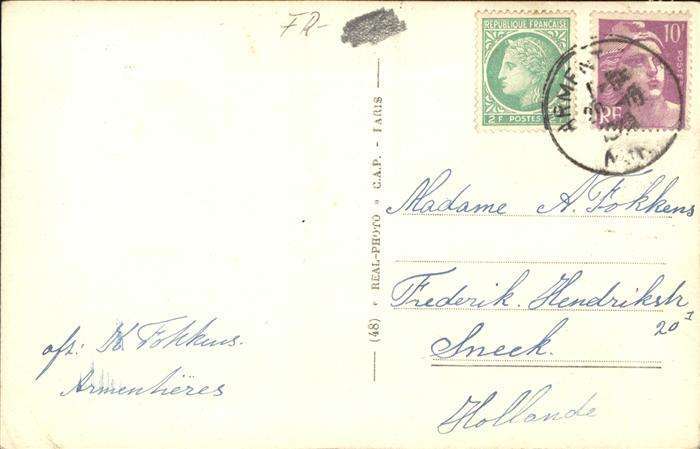 FR-
RÉPUBLIQUE FRANÇAISE
2F POSTES
10F
POSTES
RF
ARMENT
Madame A. Fokkens
Frederik Hendrikstr
20 I
Sneek.
Hollande
afz: H. Fokkens.
Armentières
(48) • REAL-PHOTO • C.A.P. - PARIS